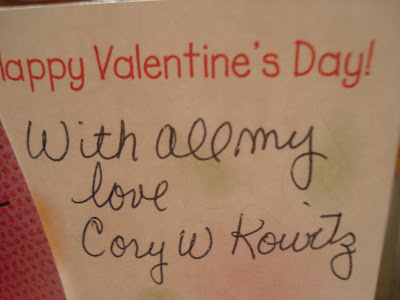 Happy Valentine's Day!
With all my
love
Cory W Kowitz